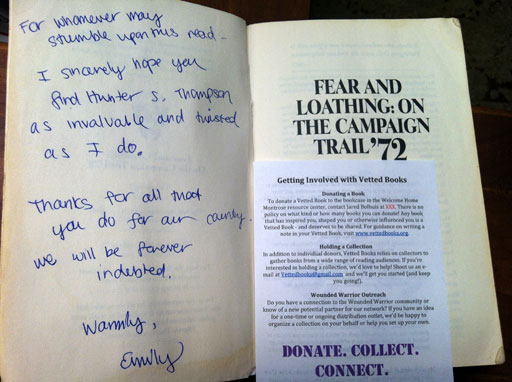 For whomever may
stumble upon this read -
I sincerely hope you
find Hunter S. Thompson
as invaluable and twisted
as I do.
Thanks for all that
you do for our country.
we will be forever
indubted.
Warmly,
Emily
FEAR AND
LOATHING: ON
THE CAMPAIGN
TRAIL '72
Getting Involved with Vetted Books
Donating a Book
To donate a Vetted Book to the bookcase in the Welcome Home
Montrose resource center, contact Jared at XXX. There is no
policy on what kind or how many books you can donate! Any book
that has inspired you, shaped you or otherwise influenced you is a
Vetted Book - and deserves to be shared. For guidance on writing a
note in your Vetted Book, visit www.vettedbooks.org.
Holding a Collection
In addition to individual donors, Vetted Books relies on collectors to
gather books from a wide range of reading audiences. If you're
interested in holding a collection, we'd love to help! Shoot us an e-
mail at Vettedbooks@gmail.com and we'll get you started (and keep
you going!).
Wounded Warrior Outreach
Do you have a connection to the Wounded Warrior community or
know of a new potential partner for our network? If you have an idea
for a one-time or ongoing distribution outlet, we'd be happy to
organize a collection on your behalf or help you set up your own.
DONATE. COLLECT.
CONNECT.